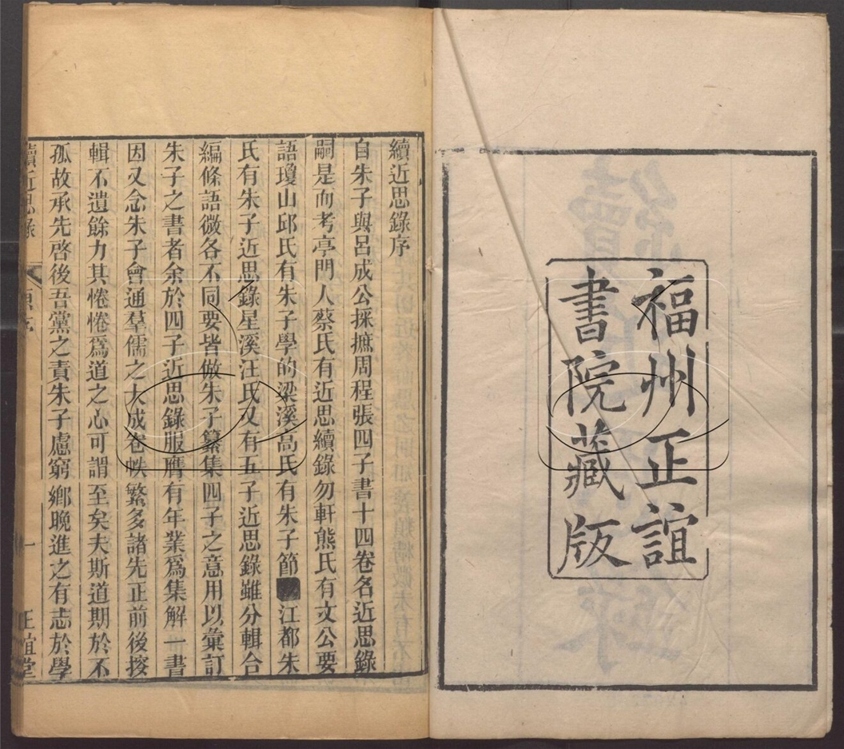 福州正誼
書院藏版
續近思錄序
自朱子與呂成公採摭周程張四子書十四卷名近思錄
嗣是而考亭門人蔡氏有近思續錄勿軒熊氏有文公要
語瓊山邱氏有朱子學的梁溪高氏有朱子節江都朱
氏有朱子近思錄星溪汪氏又有五子近思錄雖分輯合
編條語微各不同要皆倣朱子纂集四子之意用以彙訂
朱子之書者余於四子近思錄服膺有年業爲集解一書
因又念朱子會通羣儒之大成卷帙繁多諸先正前後採
輯不遺餘力其惓惓爲道之心可謂至矣夫斯道期於不
孤故承先啓後吾黨之責朱子慮窮鄉晚進之有志於學
續近思錄 原序 一 正誼堂